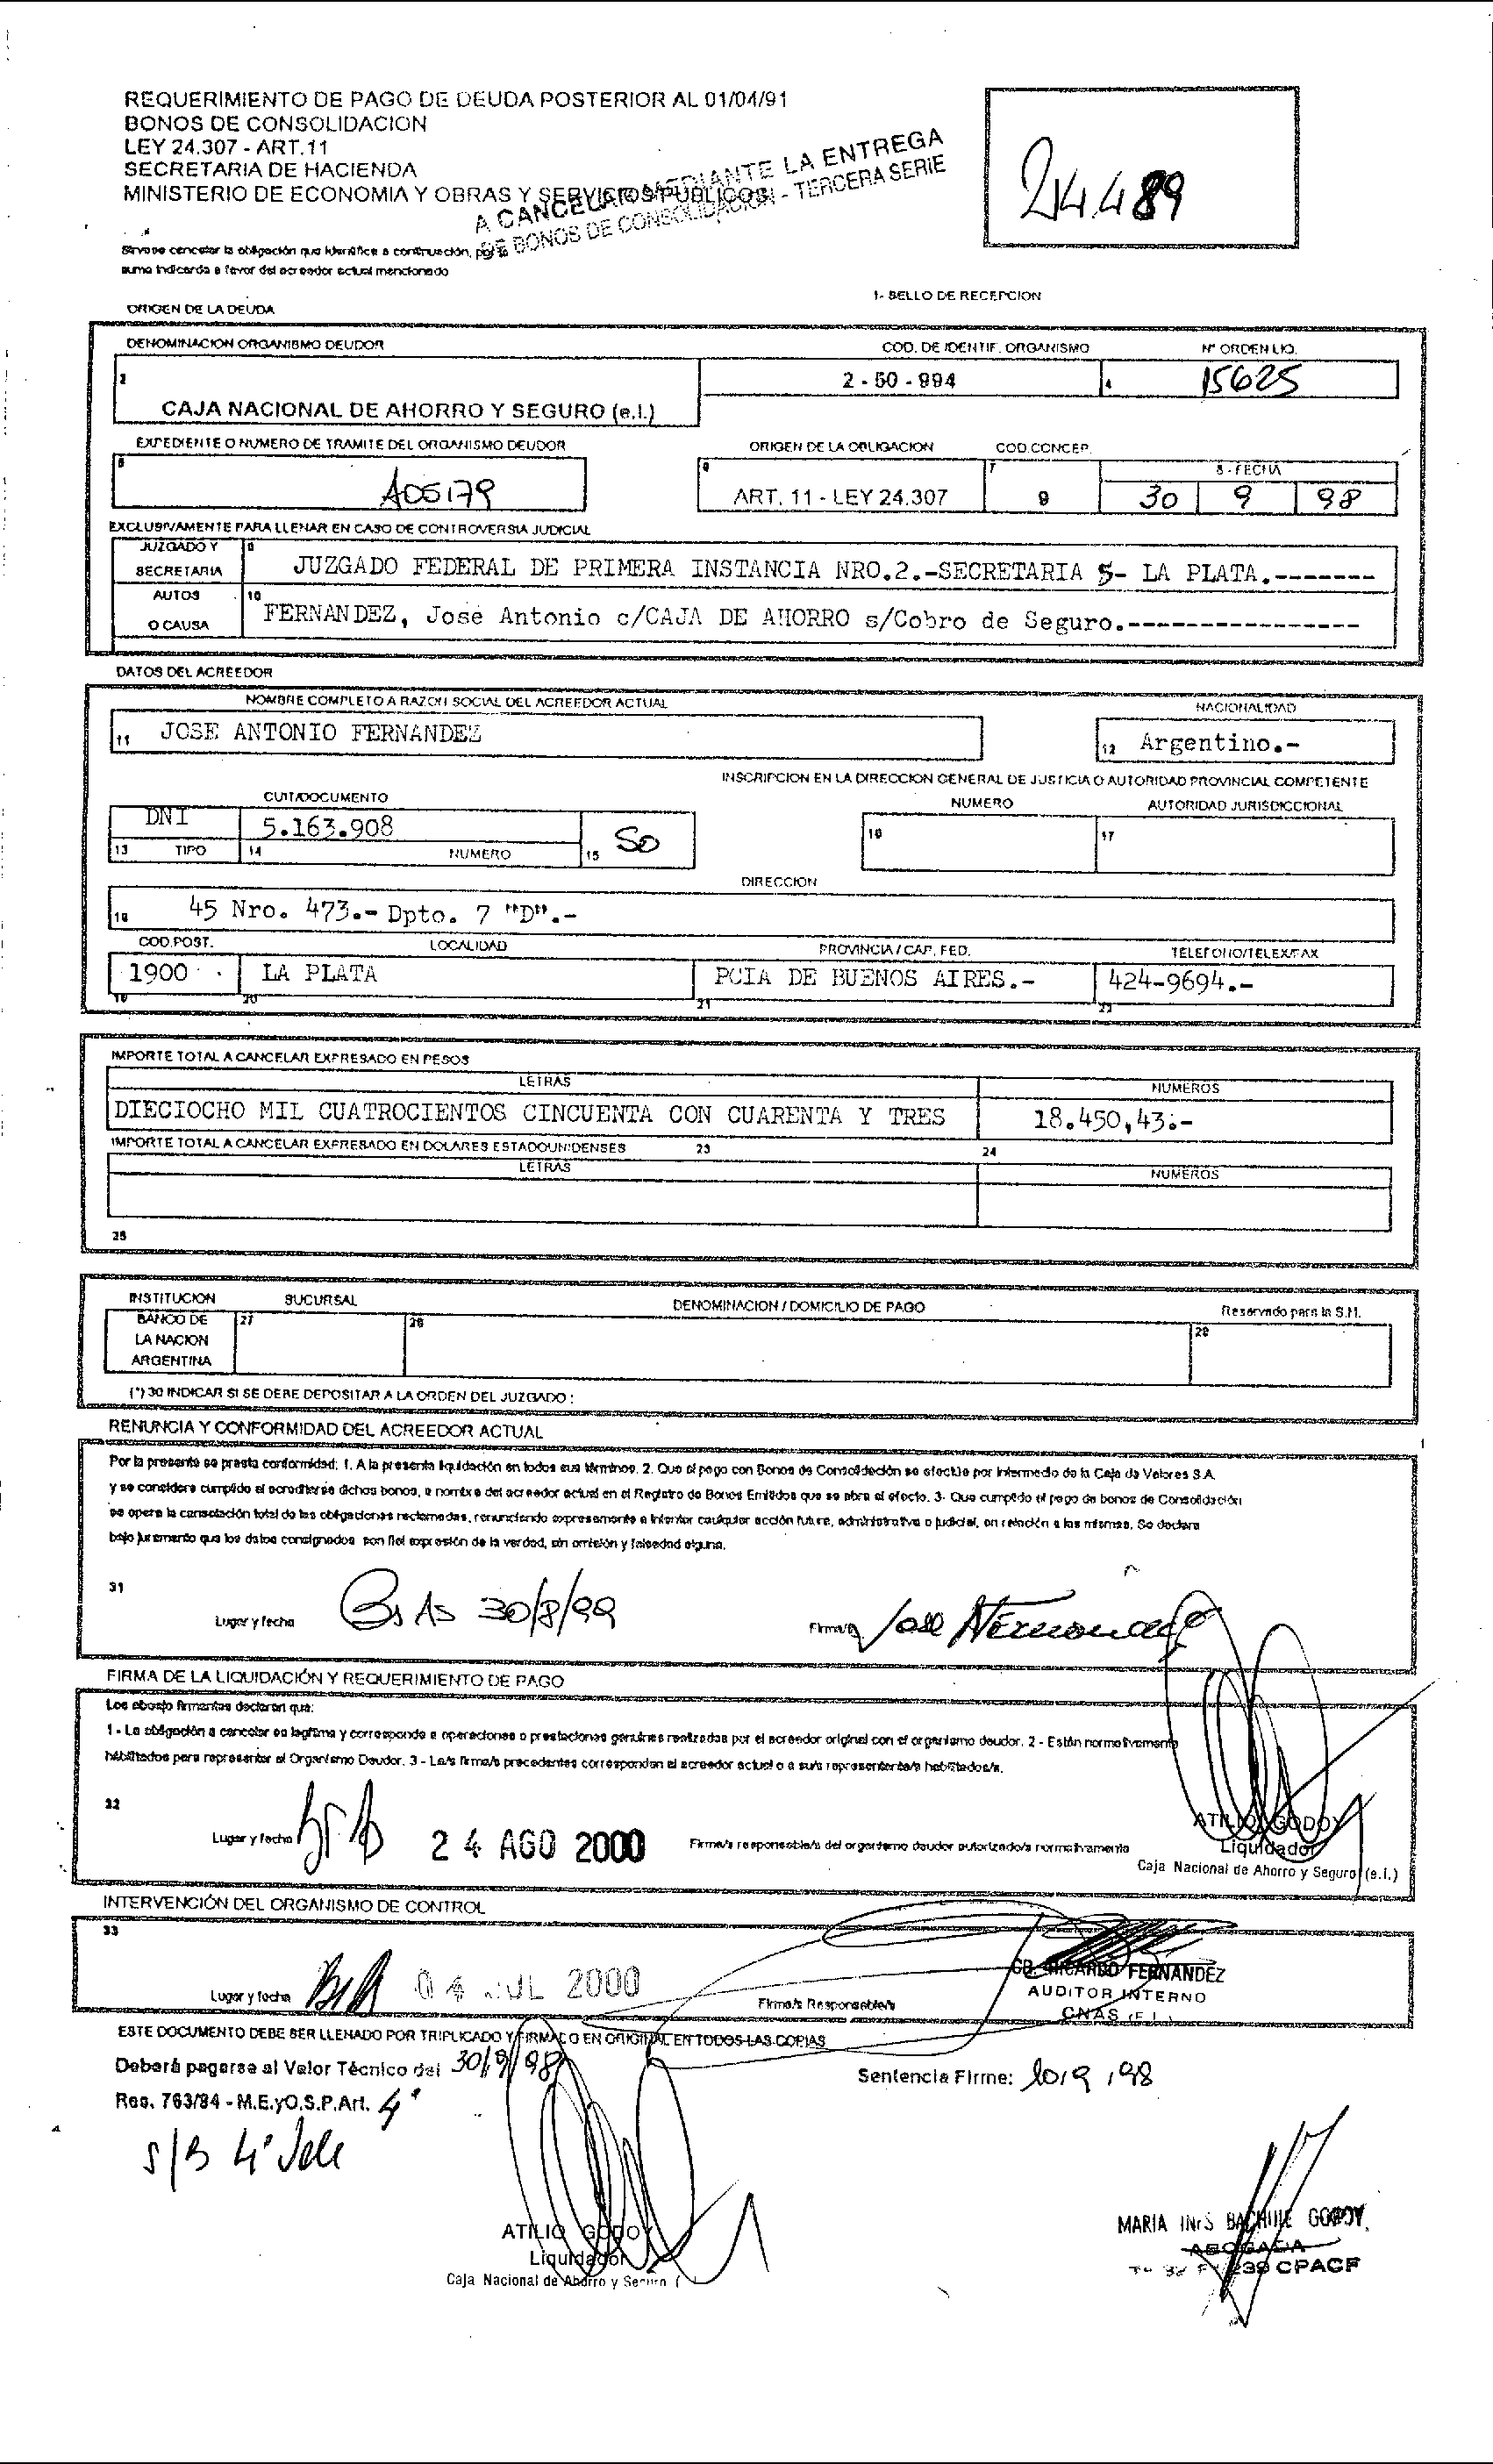 REQUERIMIENTO DE PAGO DE DEUDA POSTERIOR AL 01/04/91
BONOS DE CONSOLIDACION
LEY 24.307 - ART.11
SECRETARIA DE HACIENDA
MINISTERIO DE ECONOMIA Y OBRAS Y SERVICIOS PUBLICOS
A CANCELAR MEDIANTE LA ENTREGA
DE BONOS DE CONSOLIDACION - TERCERA SERIE
24.489
Sirvase cancelar la obligación que identifica a continuación, por la
suma indicarda a favor del acreedor actual mencionado
1- SELLO DE RECEPCION
ORIGEN DE LA DEUDA
DENOMINACION ORGANISMO DEUDOR
COD. DE IDENTIF. ORGANISMO
N° ORDEN LIQ.
2
CAJA NACIONAL DE AHORRO Y SEGURO (e.l.)
2 - 50 - 994
4 15625
EXPEDIENTE O NUMERO DE TRAMITE DEL ORGANISMO DEUDOR
ORIGEN DE LA OBLIGACION
COD.CONCEP.
8 - FECHA
A05179
ART. 11 - LEY 24.307
7
9
30 9 98
EXCLUSIVAMENTE PARA LLENAR EN CASO DE CONTROVERSIA JUDICIAL
JUZGADO Y
SECRETARIA
JUZGADO FEDERAL DE PRIMERA INSTANCIA NRO.2.-SECRETARIA 5- LA PLATA.-------
AUTOS
O CAUSA
10
FERNANDEZ, José Antonio c/CAJA DE AHORRO s/Cobro de Seguro.----------------
DATOS DEL ACREEDOR
NOMBRE COMPLETO A RAZON SOCIAL DEL ACREEDOR ACTUAL
NACIONALIDAD
11 JOSE ANTONIO FERNANDEZ
12 Argentino.-
INSCRIPCION EN LA DIRECCION GENERAL DE JUSTICIA O AUTORIDAD PROVINCIAL COMPETENTE
CUIT/DOCUMENTO
NUMERO
AUTORIDAD JURISDICCIONAL
DNI
5.163.908
15 SD
17
13 TIPO
14 NUMERO
DIRECCION
45 Nro. 473.- Dpto. 7 "D".-
COD.POST.
LOCALIDAD
PROVINCIA / CAP. FED.
TELEFONO/TELEX/FAX
1900
LA PLATA
PCIA DE BUENOS AIRES.-
424-9694.-
19 20 21 22
IMPORTE TOTAL A CANCELAR EXPRESADO EN PESOS
LETRAS
NUMEROS
DIECIOCHO MIL CUATROCIENTOS CINCUENTA CON CUARENTA Y TRES
18.450,43.-
IMPORTE TOTAL A CANCELAR EXPRESADO EN DOLARES ESTADOUNIDENSES
23 24
LETRAS
NUMEROS
INSTITUCION
SUCURSAL
DENOMINACION / DOMICILIO DE PAGO
Reservado para la S.H.
BANCO DE
LA NACION
ARGENTINA
27
(*) 30 INDICAR SI SE DEBE DEPOSITAR A LA ORDEN DEL JUZGADO :
RENUNCIA Y CONFORMIDAD DEL ACREEDOR ACTUAL
Por la presente se presta conformidad: 1. A la presente liquidación en todos sus términos. 2. Que el pago con Bonos de Consolidación se efectúe por intermedio de la Caja de Valores S.A.
y se considere cumplido el acreditarse dichos bonos, a nombre del acreedor actual en el Registro de Bonos Emitidos que se abra al efecto. 3- Que cumplido el pago de bonos de Consolidación
se opera la cancelación total de las obligaciones reclamadas, renunciando expresamente a intentar cualquier acción futura, administrativa o judicial, en relación a las mismas. Se declara
bajo juramento que los datos consignados son fiel expresión de la verdad, sin omisión y falsedad alguna.
31
Lugar y fecha Bs As 30/8/99
FIRMA DE LA LIQUIDACIÓN Y REQUERIMIENTO DE PAGO
Los abajo firmantes declaran que:
1 - La obligación a cancelar es legítima y corresponde a operaciones o prestaciones genuinas realizadas por el acreedor original con el organismo deudor. 2 - Están normativamente
habilitados para representar al Organismo Deudor. 3 - La/s firma/s precedentes corresponden al acreedor actual o a su/s representante/s habilitado/s.
32
Lugar y fecha
24 AGO 2000
Firma/s responsable/s del organismo deudor autorizado/s normativamente
ATILIO GODOY
Liquidador
Caja Nacional de Ahorro y Seguro (e.l.)
INTERVENCIÓN DEL ORGANISMO DE CONTROL
33
Lugar y fecha
04 JUL 2000
Firma/s Responsable/s
CR. RICARDO FERNANDEZ
AUDITOR INTERNO
CNAS (E.L.)
ESTE DOCUMENTO DEBE SER LLENADO POR TRIPLICADO Y FIRMADO EN ORIGINAL EN TODOS LAS COPIAS
Deberá pagarse al Valor Técnico del 30/9/98
Sentencia Firme: 10/9/98
Res. 763/94 - M.E.yO.S.P.Art. 4°
ATILIO GODOY
Liquidador
Caja Nacional de Ahorro y Seguro (
MARIA INES GODOY
ABOGADA
CPACF